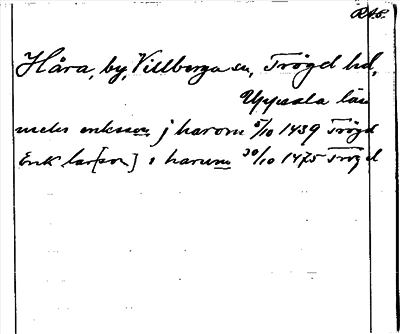 Håra, by, Villberga sn, Trögd hd,
Uppsala län
niels erikson j harom 5/10 1439 Trögd
Erik lar[son] i harum 30/10 1475 Trögd